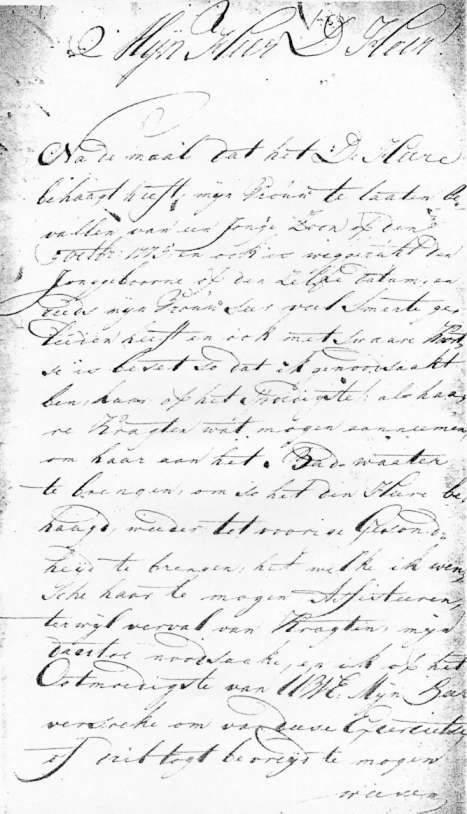 Mijn Heer D Heer
Na de maal dat het De Heere
behaagt heeft, mijn Vrouw te laaten be
vallen van een Jonge Zoon op den
en ook so weggerukt den
Jonggeboorne op den Zelfde datum, en
mijn Vrouw seer veel smerte ge,
leeden heeft en ook met swaare
se is beset so dat ik genoodsaakt
ben, haar op het als haa,
re Kragten wat mogen aanneemen,
om haar aan het Bade waater
te brengen, om so het den Heere be
haagd, weeder tot voorige Gesond,
heijd te brengen, het welke ik wen,
sche haar te mogen Assisteeren,
terwijl verval van Kragten, mijn
daartoe noodsaake, en ik op het
Ootmoedigste van UWE: Mijn Heer
versoeke om van deese Exercitie
of bevreijd te mogen
weesen,